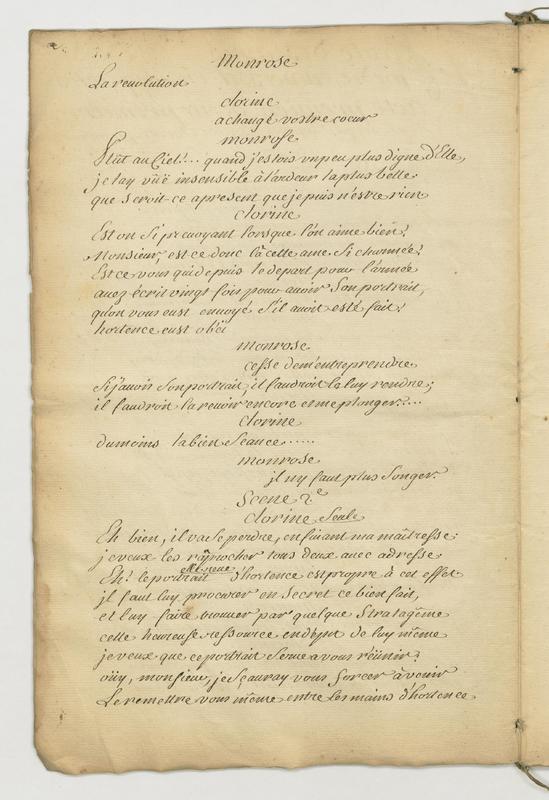 Monrose
La revolution
clorine
a changé vostre cœur
monrose
Plût au Ciel!... quand j'estois un peu plus digne d'Elle,
je l'ay vüe insensible à l'ardeur la plus belle
que seroit ce apresent que je puis n'estre rien
clorine
Est on si prevoyant lorsque l'on aime bien?
Monsieur, est ce donc là cette ame si charmée?
Est ce vous qui depuis le depart pour l'armée
avez écrit vingt fois pour avoir son portrait,
qu'on vous eust envoyé s'il avoit esté fait?
hortence eust obéi
monrose
cesse dem'entreprendre
Si j'avois son portrait, il faudroit le luy rendre;
il faudroit la revoir encore et me plonger?...
clorine
du moins la bien seance.....
monrose
il n'y faut plus songer.
Scene 2.e
clorine seule
Eh bien, il va se perdre, en fuiant ma maîtresse;
je veux les raprocher tous deux avec adresse
Eh! le portrait d'hortence est propre à cet effet
il faut luy procurer en secret ce bien fait,
et luy faire trouver par quelque stratagême
cette heureuse ressource en dépit de luy même
je veux que ce portrait serve a vous réünir?
oüy, monsieur, je sçauray vous forcer à venir
Le remettre vous même entre les mains d'hortence